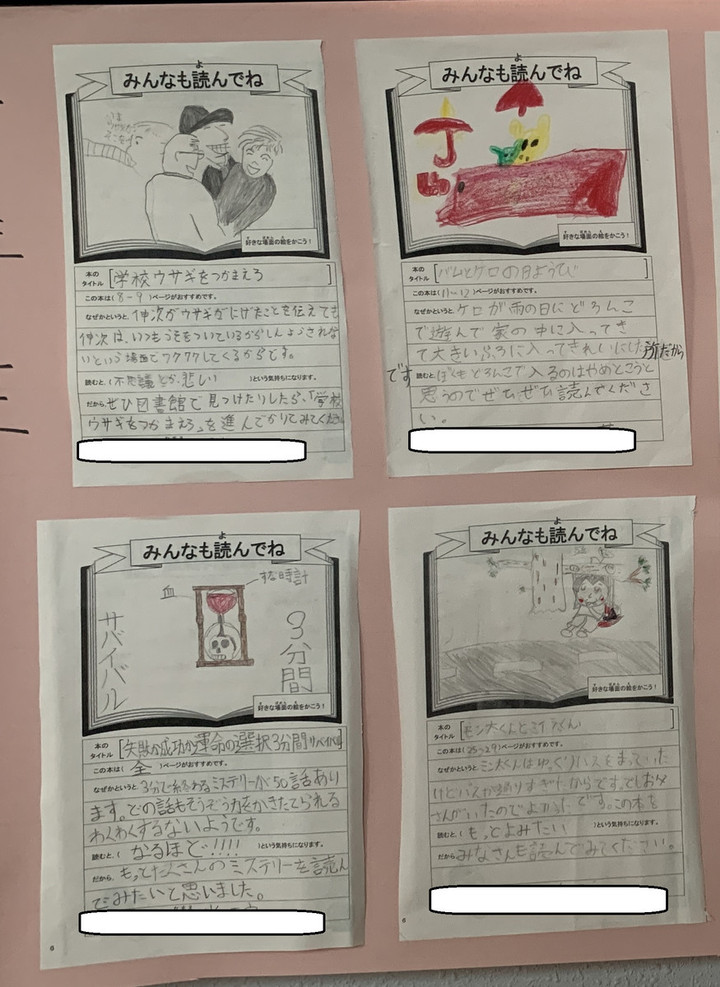 よ
みんなも読んでね
いま
好きな場面の絵をかこう!
本の
タイトル [学校ウサギをつかまえろ]
この本は(8-9)ページがおすすめです。
なぜかというと、伸次がウサギがにげたことを伝えても
伸次は、いつもうそをついているからしんようされな
いという場面でワクワクしてくるからです。
読むと、(不思議とか、悲しい)という気持ちになります。
だから、ぜひ図書館で見つけたりしたら、「学校
ウサギをつかまえろ」を進んでかりてみてください
よ
みんなも読んでね
好きな場面の絵をかこう!
本の
タイトル [バムとケロの日ようび]
この本は(11-12)ページがおすすめです。
なぜかというと、ケロが雨の日にどろんこ
で遊んで家の中に入ってき
て大きいふろに入ってきれいにした所だから
です
読むと ぼくもどろんこで入るのはやめとこうと
思うのでぜひぜひ読んでくださ
い。
よ
みんなも読んでね
血
すな時計
サバイバル
3分間
好きな場面の絵をかこう!
本の
タイトル [失敗か成功か運命の選択3分間サバイバル]
この本は(全)ページがおすすめです。
なぜかというと、3分で終わるミステリーが50話あり
ます。どの話もそうぞう力をかきたてられる
わくわくするないようです。
読むと、(なるほど!!!!)という気持ちになります。
だから、もっとたくさんのミステリーを読ん
でみたいと思いました。
6
よ
みんなも読んでね
好きな場面の絵をかこう!
本の
タイトル [モン太くん
この本は(25-29)ページがおすすめです。
なぜかというと、モン太くんはゆっくりバスをまっていた
けどバスが
さんがいたのでよかったです。この本を
読むと、(もっとよみたい)という気持ちになります。
だから、みなさんも読んでみてください。
6